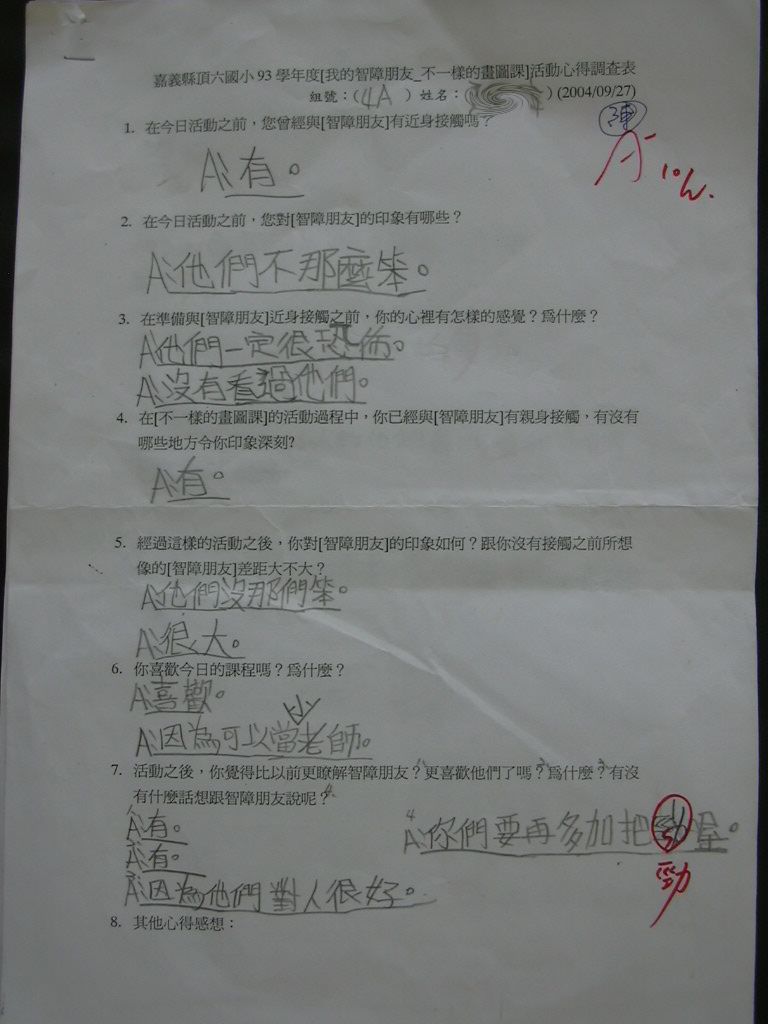 嘉義縣頂六國小93學年度[我的智障朋友_不一樣的畫圖課]活動心得調查表
組號：(4A ) 姓名：( ) (2004/09/27)
陳
A-
1. 在今日活動之前，您曾經與[智障朋友]有近身接觸嗎？
A:有。
2. 在今日活動之前，您對[智障朋友]的印象有哪些？
A:他們不那麼笨。
3. 在準備與[智障朋友]近身接觸之前，你的心裡有怎樣的感覺？爲什麼？
A:他們一定很恐怖。
A:沒有看過他們。
4. 在[不一樣的畫圖課]的活動過程中，你已經與[智障朋友]有親身接觸，有沒有
哪些地方令你印象深刻?
A:有。
5. 經過這樣的活動之後，你對[智障朋友]的印象如何？跟你沒有接觸之前所想
像的[智障朋友]差距大不大？
A:他們沒那們笨。
A:很大。
6. 你喜歡今日的課程嗎？爲什麼？
A:喜歡。
A:因為可以當小老師。
7. 活動之後，你覺得比以前更瞭解智障朋友？更喜歡他們了嗎？爲什麼？有沒
有什麼話想跟智障朋友說呢？
1 A:有。
2 A:有。
3 A:因為他們對人很好。
4 A:你們要再多加把勁喔。
勁
8. 其他心得感想：